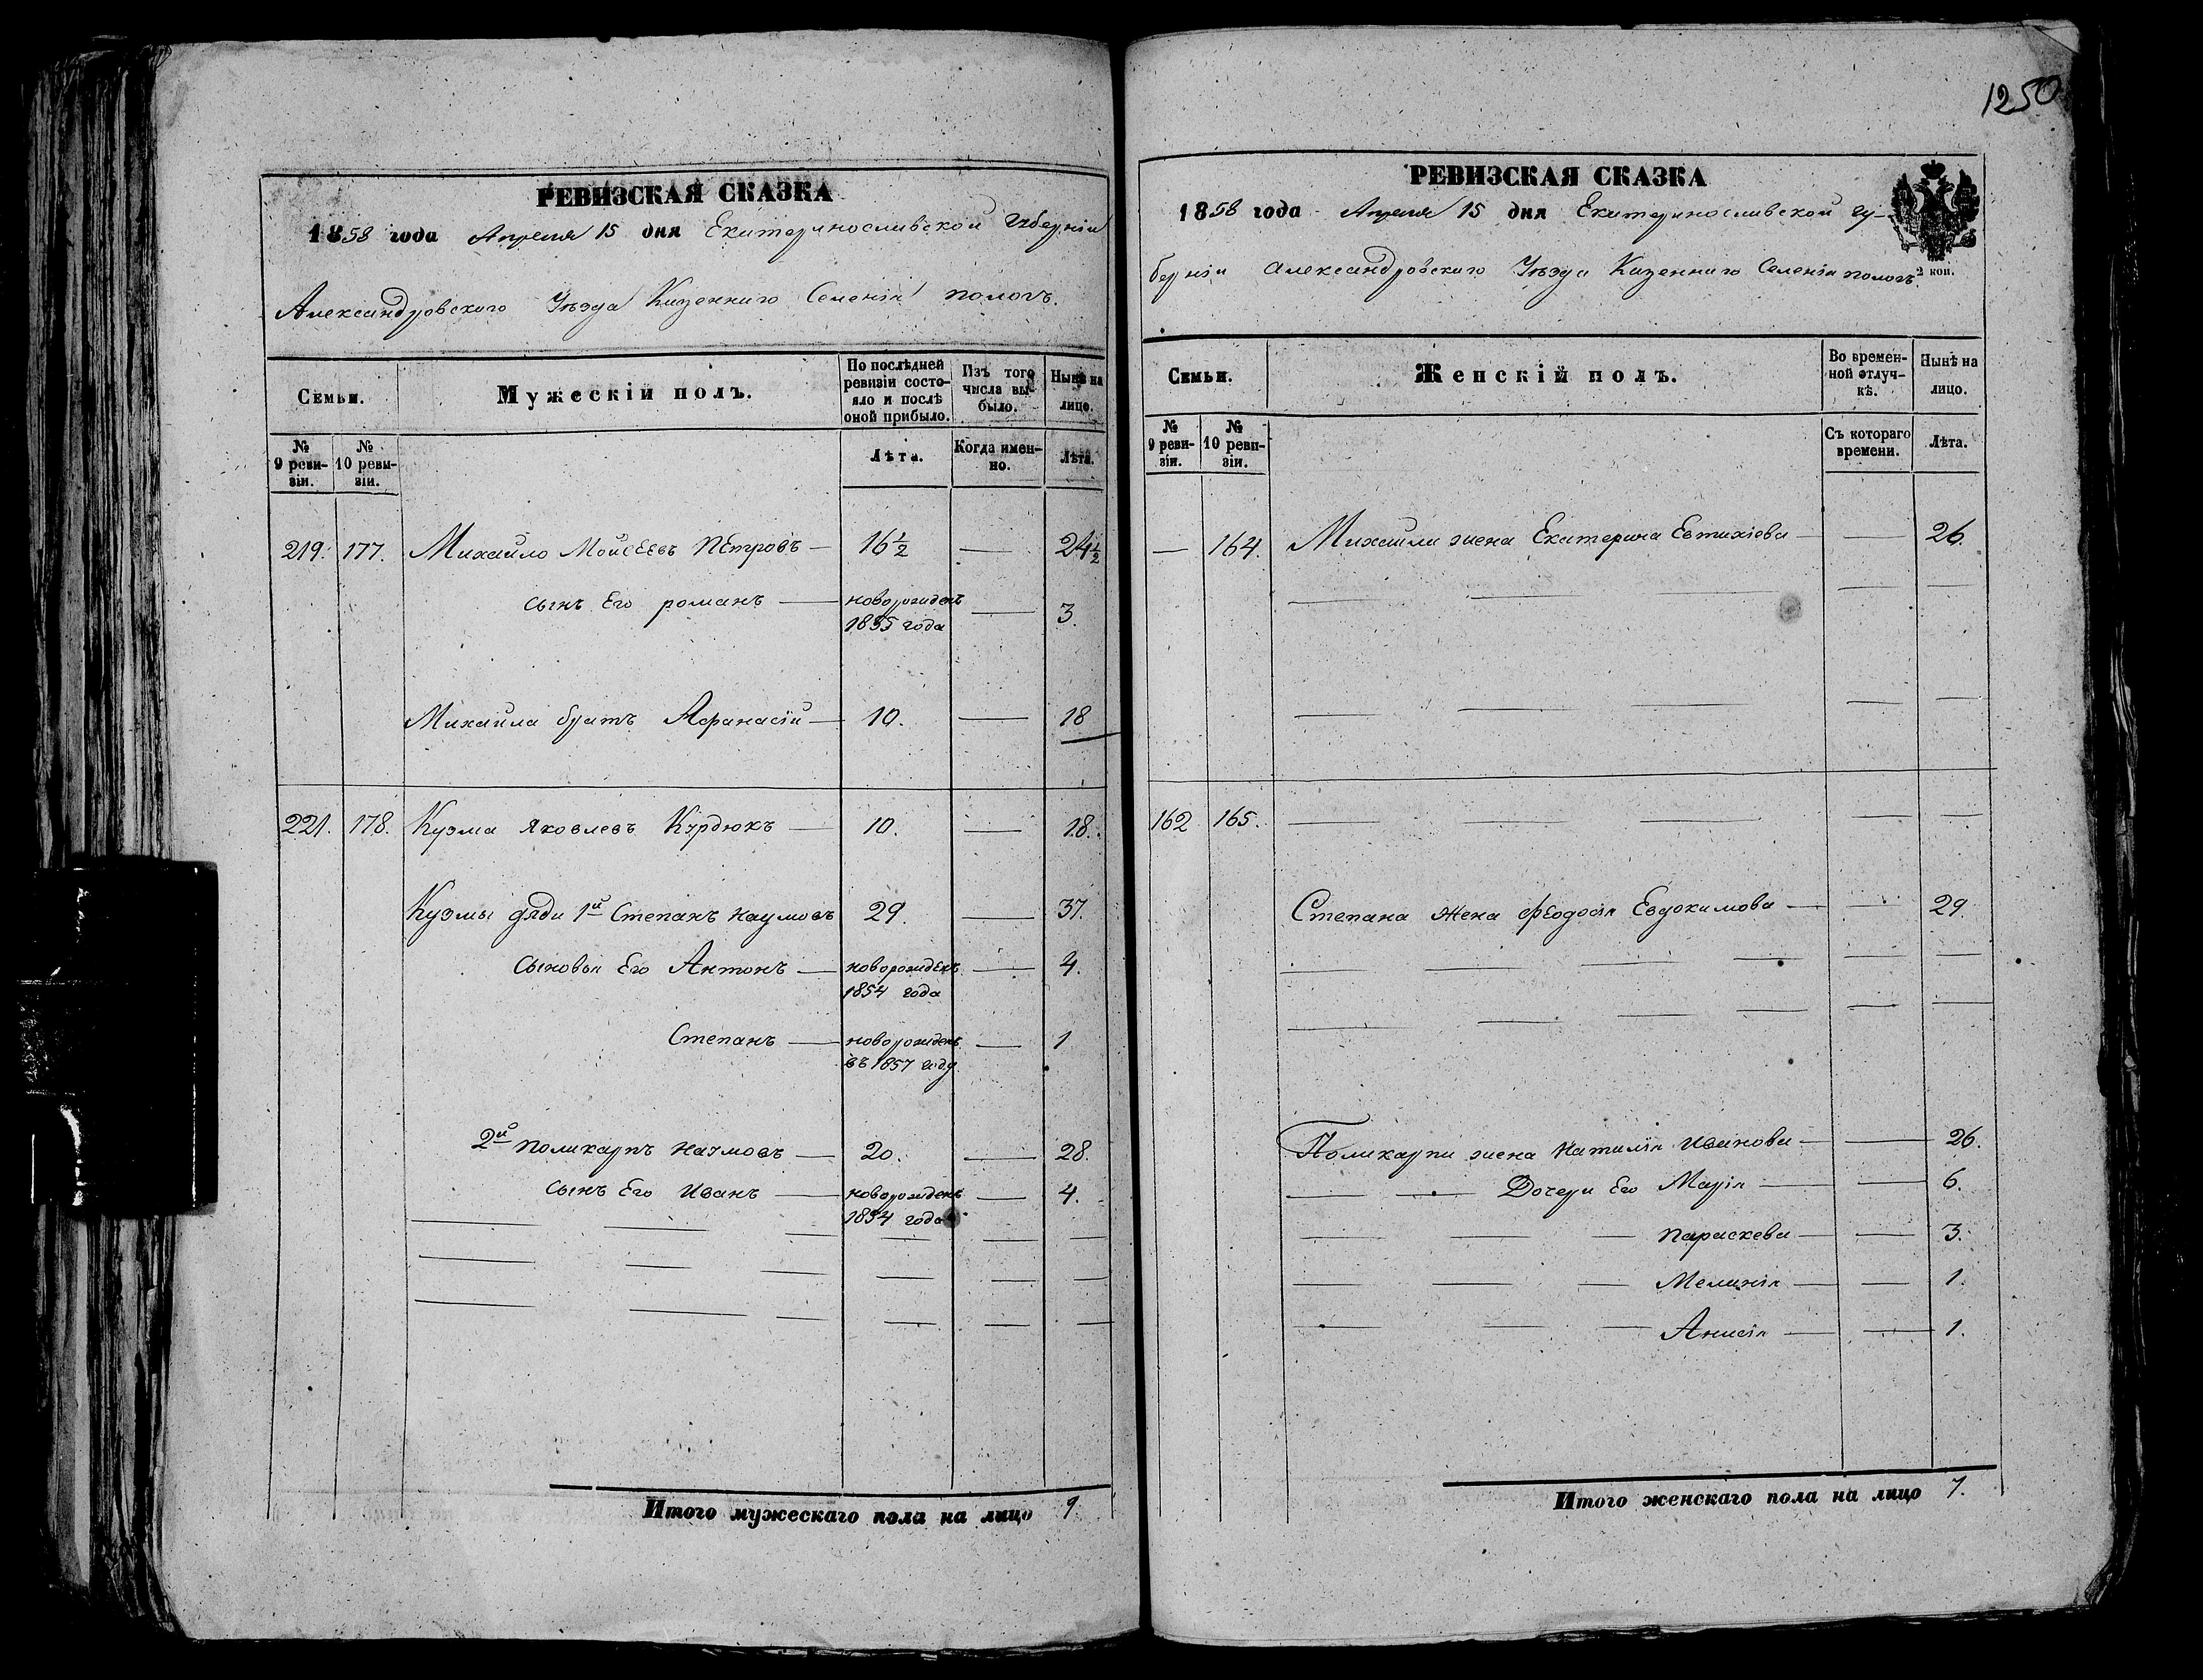 1250
РЕВИЗСКАЯ СКАЗКА
1858 года Апреля 15 дня Екатеринославской Губерніи
Александровского Уѣзда Казенного Селенія пологъ.
Семьи.
Мужескій полъ.
По послѣдней ревизіи состояло и послѣ оной прибыло.
Изъ того числа выбыло.
Нынѣ на лицо.
№ 9 ревизіи.
№ 10 ревизіи.
Лѣта.
Когда именно.
Лѣта.
219. 177. Михайло Мойсеевъ Петровъ — 16½ — 24½
сынъ Его романъ — новорожденъ — 3.
1855 года
Михайла братъ Афанасій — 10. — 18
221. 178. Кузма Яковлевъ Курдюкъ — 10. — 18.
Кузмы дяди 1й Степанъ Наумовъ 29. — 37.
сыновья Его Антонъ — новорожденъ — 4.
1854 года
Степанъ — новорожденъ — 1
въ 1857 году
2й поликарпъ Наумовъ — 20. — 28.
сынъ Его Иванъ — новорожденъ — 4.
1854 года
Итого мужескаго пола на лицо 9.
РЕВИЗСКАЯ СКАЗКА
1858 года Апреля 15 дня Екатеринославской гу-
берніи Александровского Уѣзда Казенного Селенія пологъ.
2 коп.
Семьи.
Женскій полъ.
Во временной отлучкѣ.
Нынѣ на лицо.
№ 9 ревизіи.
№ 10 ревизіи.
Съ котораго времени.
Лѣта.
— 164. Михайли жена Екатерина Евтихіева — — 26.
162 165.
Степана жена Феодосія Евдокимова — — 29.
Поликарпи жена Наталія Иванова — — 26.
Дочери Его Марія — — 6.
Параскева — — 3.
Меланія — — 1.
Анисія — — 1.
Итого женскаго пола на лицо 7.